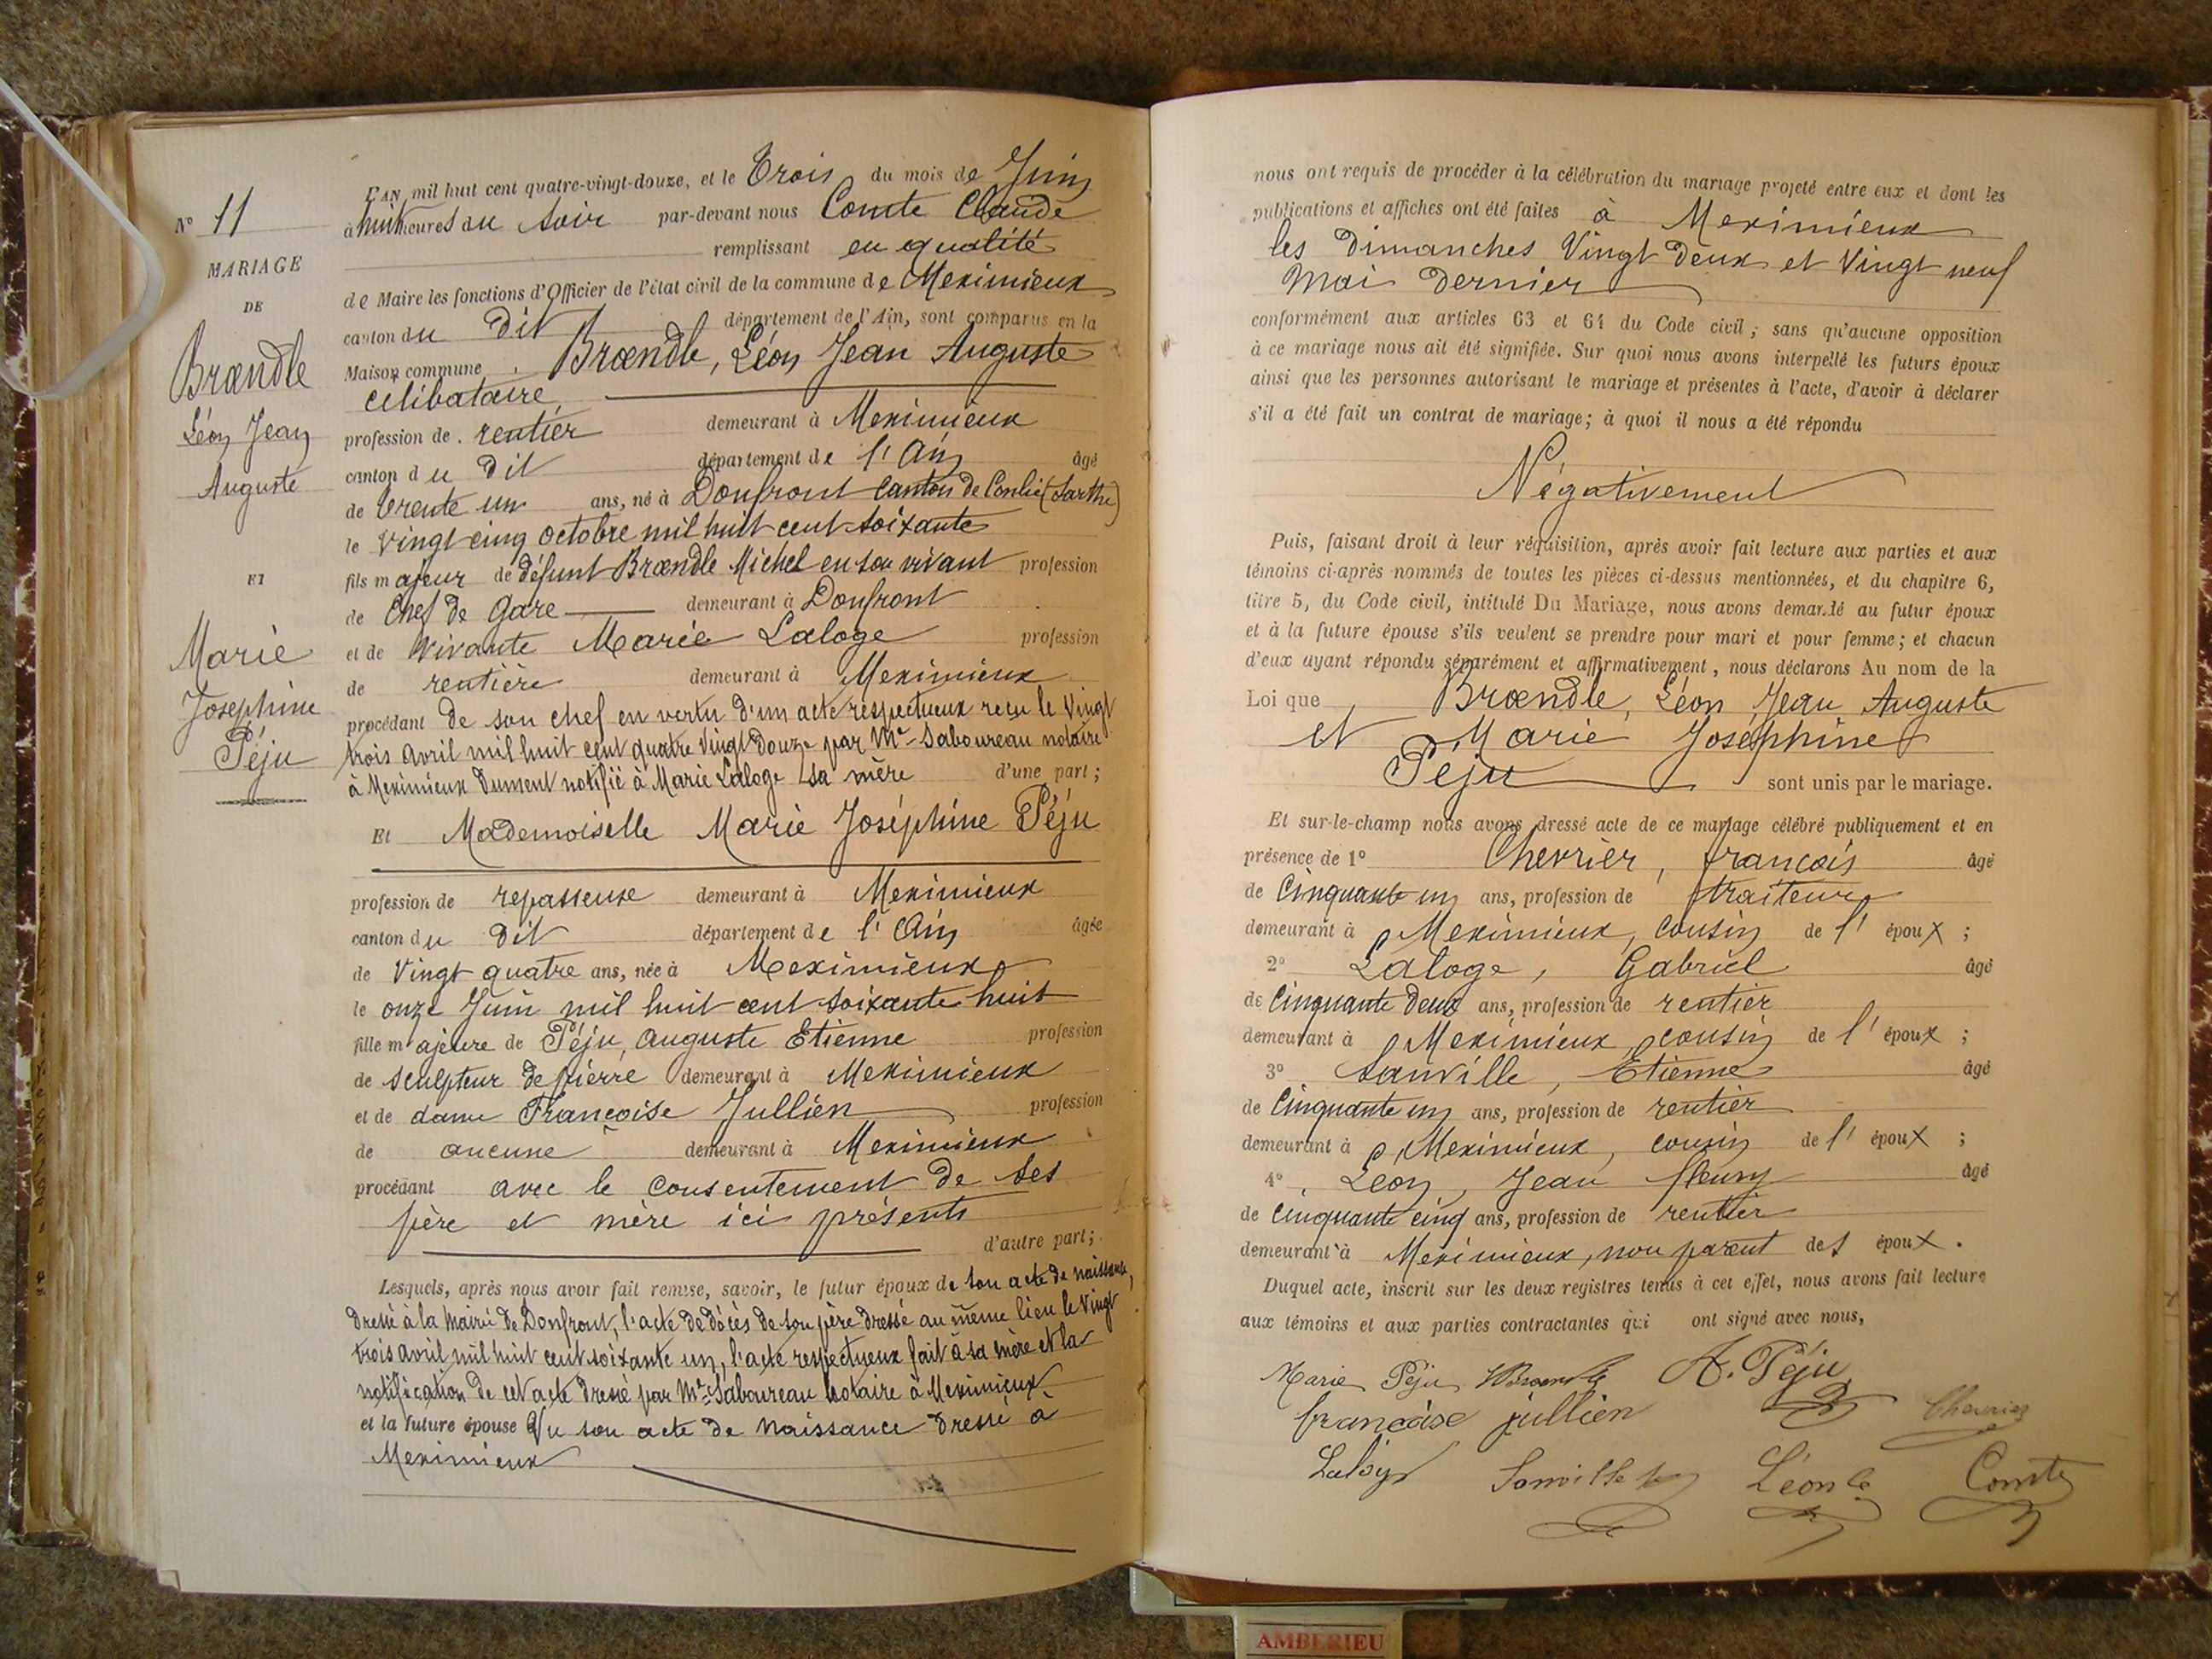 N° 11
MARIAGE
DE
Brœndle
Léon Jean
Auguste
ET
Marie
Josephine
Péju
L'AN mil huit cent quatre-vingt-douze, et le Trois du mois de Juin
à huit heures du soir par-devant nous Comte Claude
remplissant en qualité
de Maire les fonctions d'Officier de l'état civil de la commune de Meximieux
canton du dit département de l'Ain, sont comparus en la
Maison commune Brœndle, Léon Jean Auguste
célibataire,
profession de rentier demeurant à Meximieux
canton du dit département de l'Ain âgé
de trente un ans, né à Donfront canton de Conlie (Sarthe)
le vingt cinq octobre mil huit cent soixante
fils majeur de défunt Brœndle Michel en son vivant profession
de Chef de Gare demeurant à Donfront
et de vivante Marie Laloge profession
de rentière demeurant à Meximieux
procédant de son chef en vertu d'un acte respectueux reçu le vingt
trois avril mil huit cent quatre vingt douze par Me Saboureau notaire
à Meximieux dument notifié à Marie Laloge sa mère d'une part;
Et Mademoiselle Marie Joséphine Péju
profession de repasseuse demeurant à Meximieux
canton du dit département de l'Ain âgée
de Vingt quatre ans, née à Meximieux
le onze Juin mil huit cent soixante huit
fille majeure de Péju, Auguste Etienne profession
de sculpteur de pierre demeurant à Meximieux
et de dame Françoise Jullien profession
de aucune demeurant à Meximieux
procédant avec le consentement de ses
père et mère ici présents
d'autre part;
Lesquels, après nous avoir fait remise, savoir, le futur époux de son acte de naissance,
dressé à la Mairie de Donfront, l'acte de décès de son père dressé au même lieu le vingt
trois avril mil huit cent soixante un, l'acte respectueux fait à sa mère et la
notification de cet acte dressé par Me Saboureau notaire à Meximieux
et la future épouse Vu son acte de naissance dressé à
Meximieux
nous ont requis de procéder à la célébration du mariage projeté entre eux et dont les
publications et affiches ont été faites à Meximieux
les dimanches Vingt deux et Vingt neuf
Mai dernier
conformément aux articles 63 et 64 du Code civil; sans qu'aucune opposition
à ce mariage nous ait été signifiée. Sur quoi nous avons interpellé les futurs époux
ainsi que les personnes autorisant le mariage et présentes à l'acte, d'avoir à déclarer
s'il a été fait un contrat de mariage; à quoi il nous a été répondu
Négativement
Puis, faisant droit à leur réquisition, après avoir fait lecture aux parties et aux
témoins ci-après nommés de toutes les pièces ci-dessus mentionnées, et du chapitre 6,
titre 5, du Code civil, intitulé Du Mariage, nous avons demandé au futur époux
et à la future épouse s'ils veulent se prendre pour mari et pour femme; et chacun
d'eux ayant répondu séparément et affirmativement, nous déclarons Au nom de la
Loi que Brœndle, Léon Jean Auguste
et Marie Joséphine
Péju sont unis par le mariage.
Et sur-le-champ nous avons dressé acte de ce mariage célébré publiquement et en
présence de 1° Chevrier, françois âgé
de Cinquante un ans, profession de traiteur
demeurant à Meximieux, cousin de l'époux;
2° Laloge, Gabriel âgé
de Cinquante deux ans, profession de rentier
demeurant à Meximieux, cousin de l'époux;
3° Sanville, Etienne âgé
de Cinquante un ans, profession de rentier
demeurant à Meximieux, cousin de l'époux;
4° Léon, Jean fleury âgé
de Cinquante cinq ans, profession de rentier
demeurant à Meximieux, non parent des époux.
Duquel acte, inscrit sur les deux registres tenus à cet effet, nous avons fait lecture
aux témoins et aux parties contractantes qui ont signé avec nous,
Marie Péju A. Péju
françoise jullien Chevrier
Comte
AMBERIEU